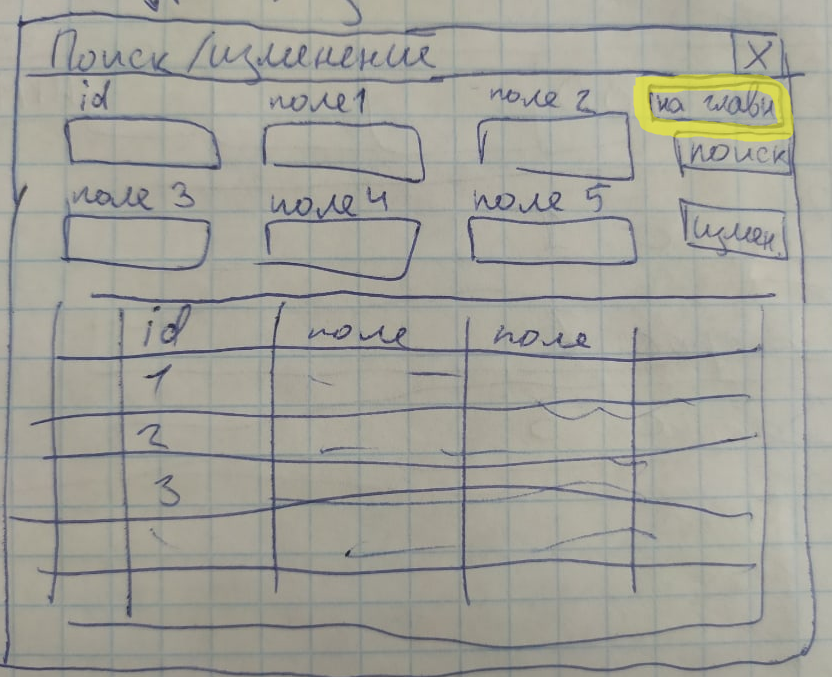 Поиск /изменение X
id поле1 поле 2 на главн
поиск
поле 3 поле 4 поле 5
измен.
id поле поле
1
2
3